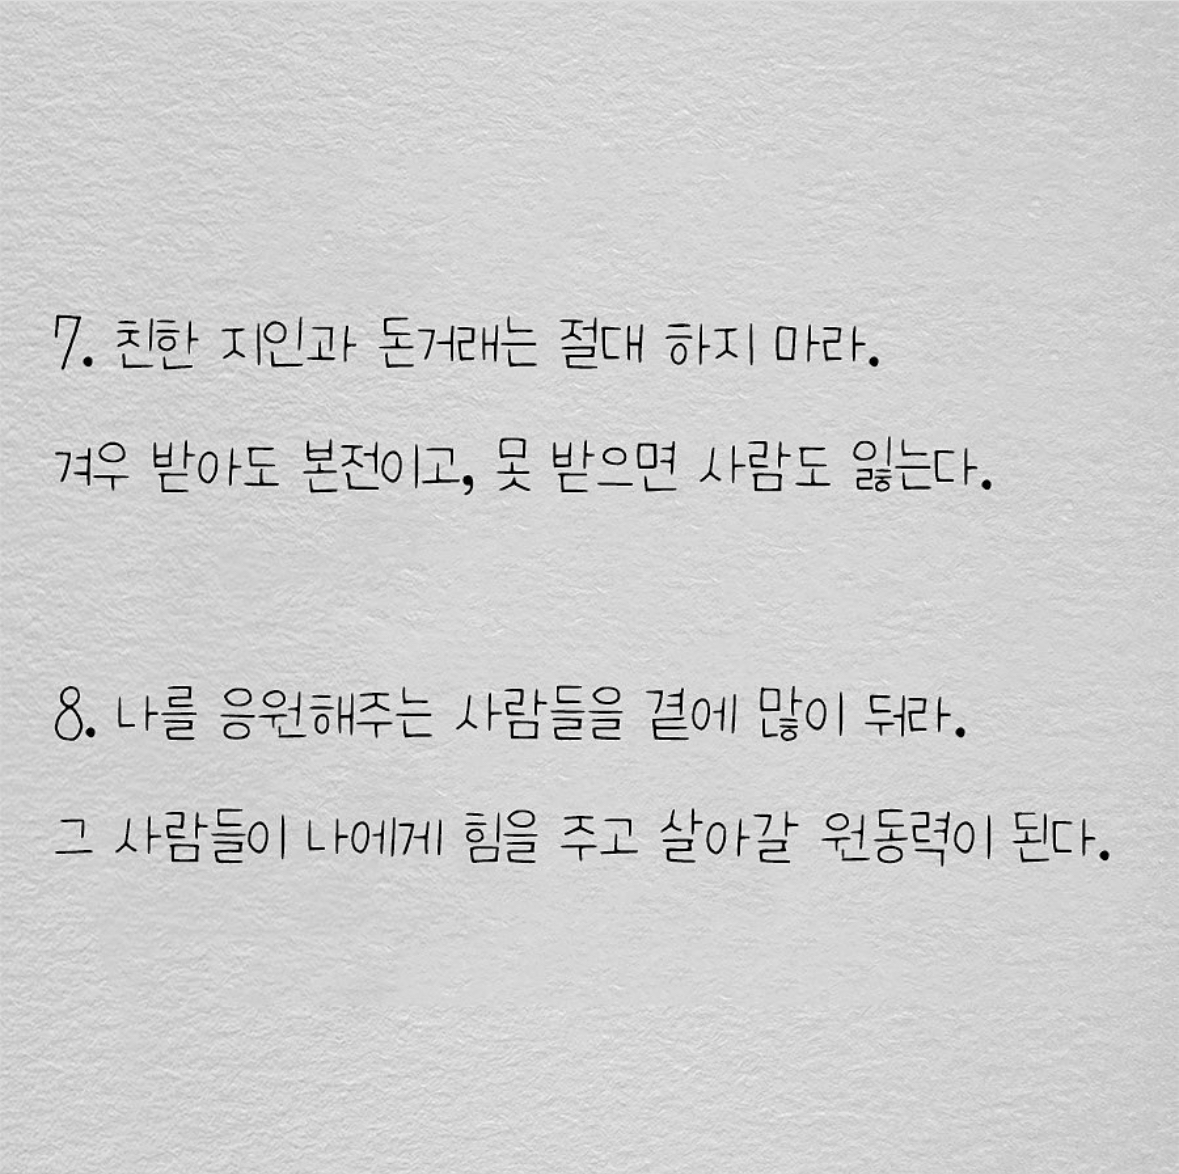 7. 친한 지인과 돈거래는 절대 하지 마라.
겨우 받아도 본전이고, 못 받으면 사람도 잃는다.
8. 나를 응원해주는 사람들을 곁에 많이 둬라.
그 사람들이 나에게 힘을 주고 살아갈 원동력이 된다.